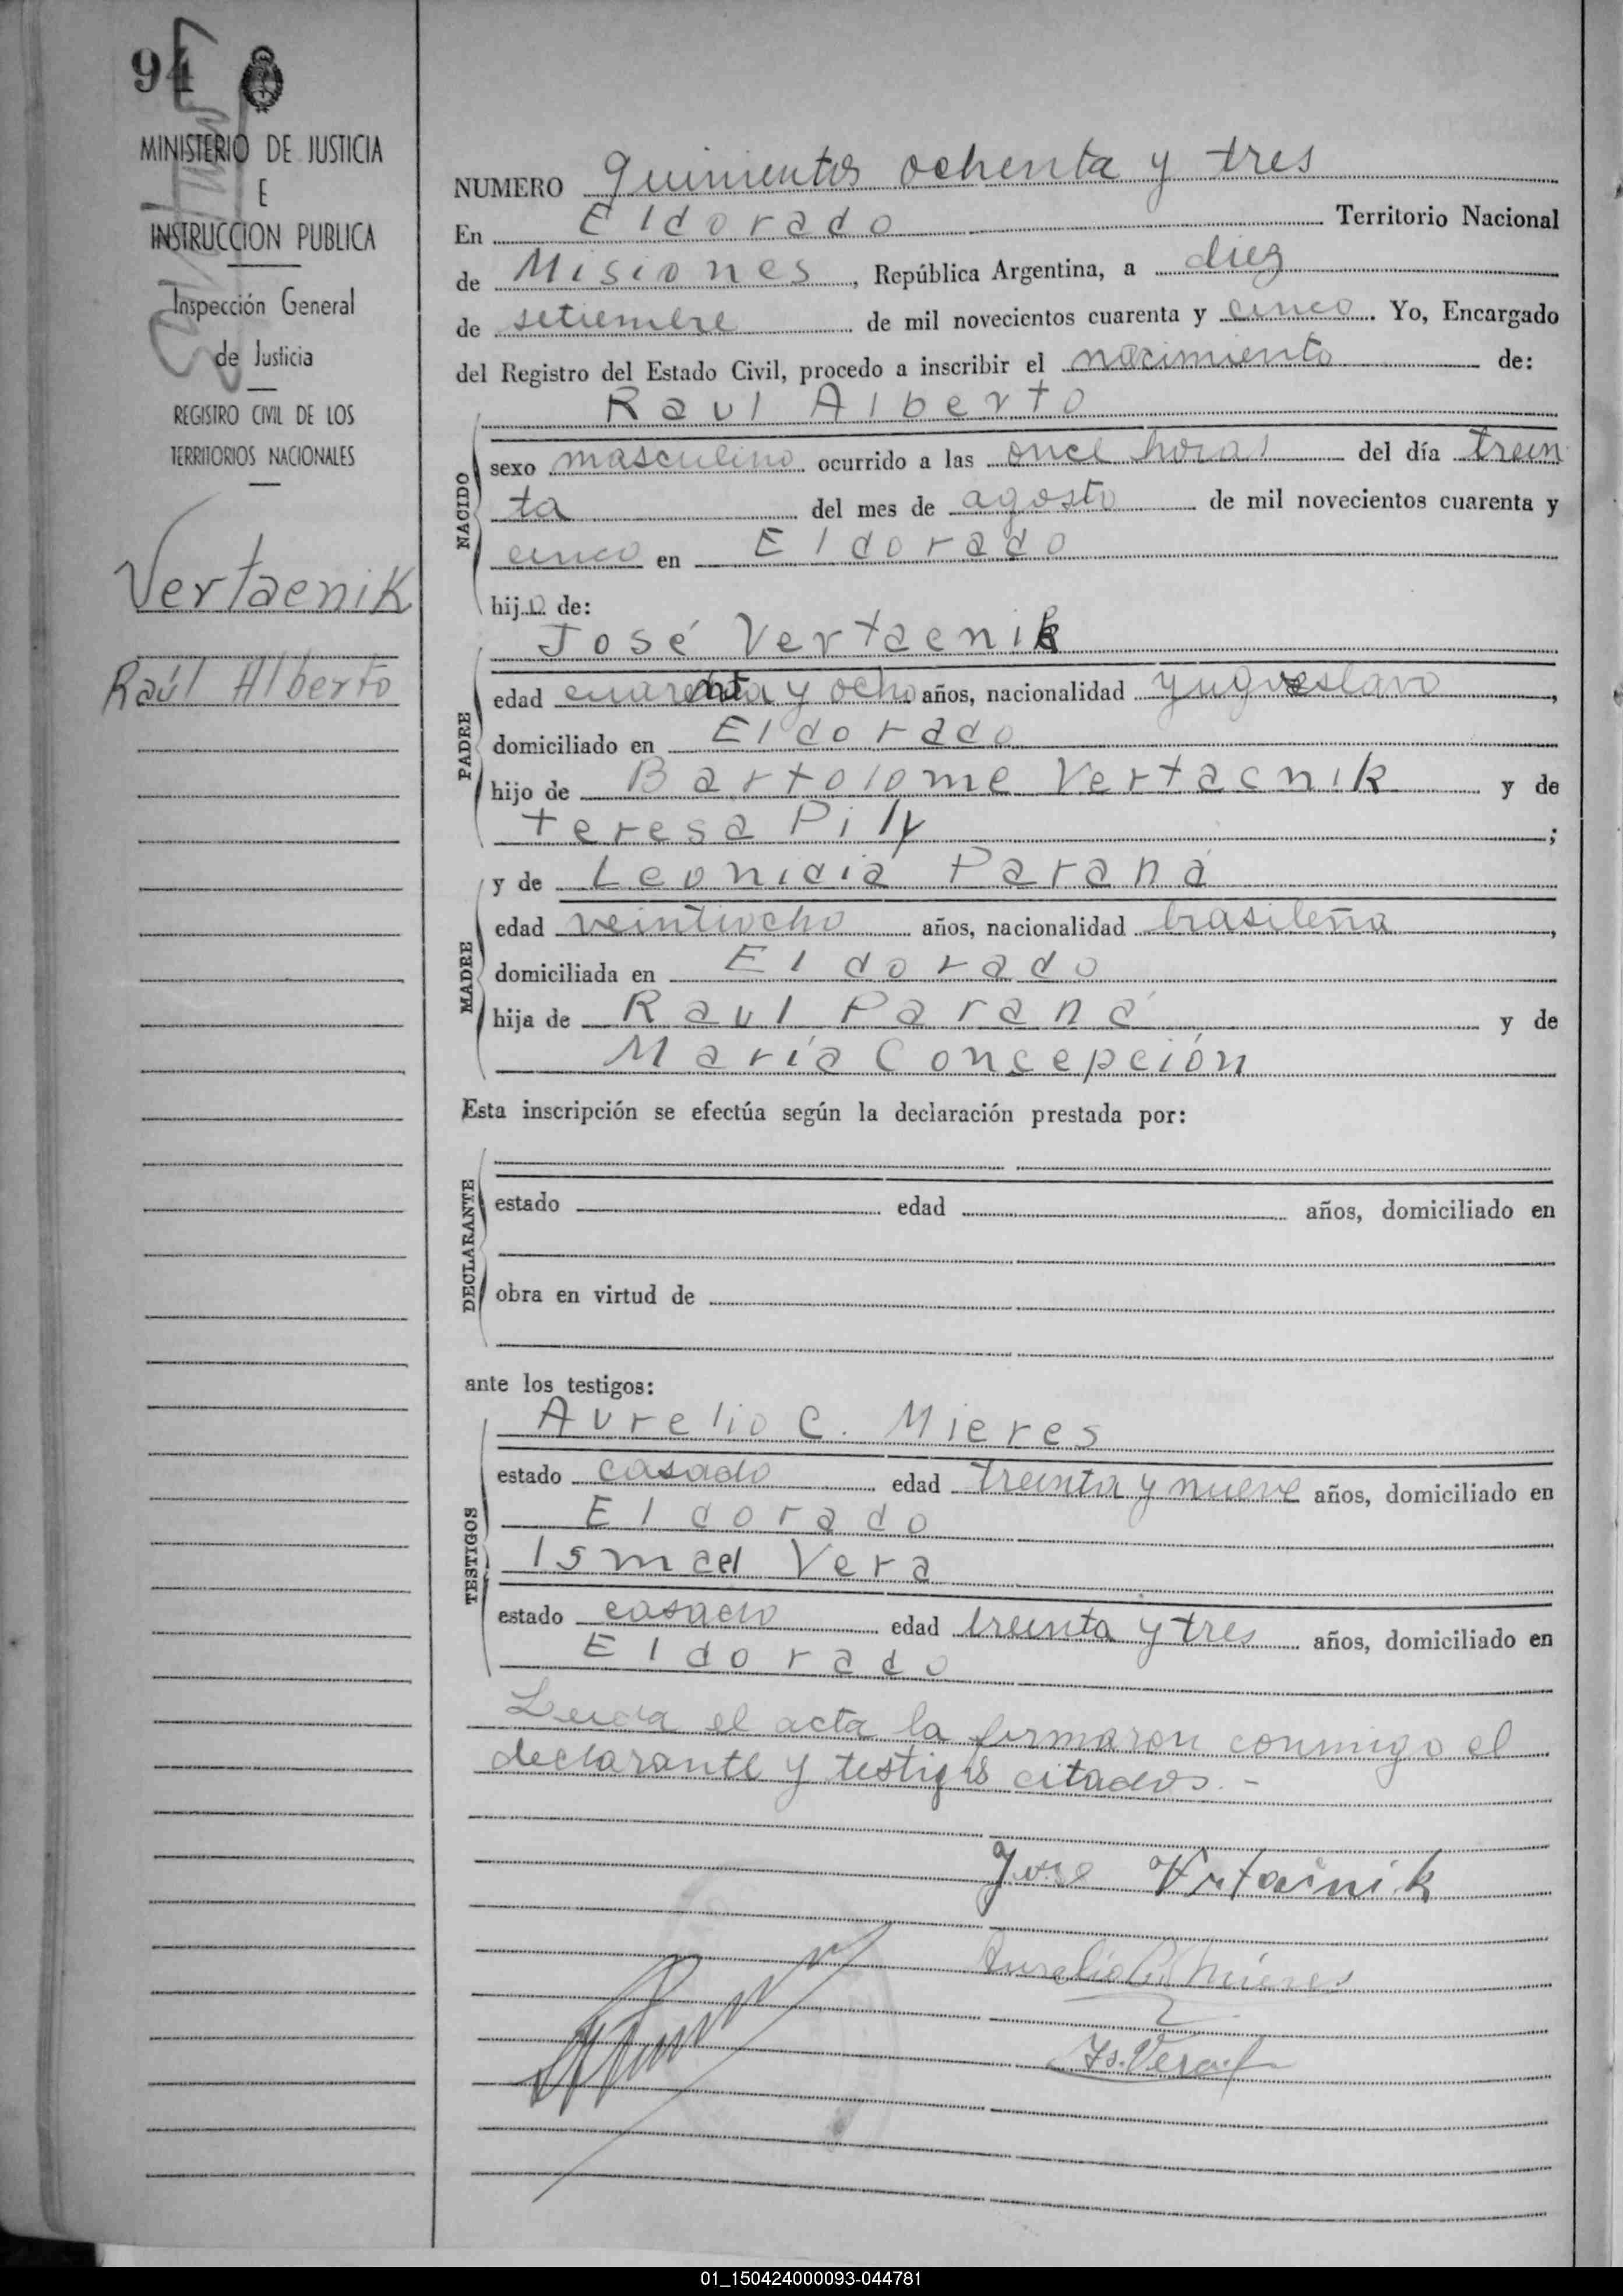 94
MINISTERIO DE JUSTICIA
E
INSTRUCCION PUBLICA
Inspección General
de Justicia
REGISTRO CIVIL DE LOS
TERRITORIOS NACIONALES
Vertaenik
Raúl Alberto
NUMERO quinientos ochenta y tres
En Eldorado Territorio Nacional
de Misiones, República Argentina, a diez
de setiembre de mil novecientos cuarenta y cinco. Yo, Encargado
del Registro del Estado Civil, procedo a inscribir el nacimiento de:
Raul Alberto
NACIDO
sexo masculino ocurrido a las once horas del día trein
ta del mes de agosto de mil novecientos cuarenta y
cinco en Eldorado
hijo de:
José Vertaenik
PADRE
edad cuarenta y ocho años, nacionalidad yugoeslavo,
domiciliado en Eldorado
hijo de Bartolome Vertacnik y de
teresa Pily;
y de Leonidia Paraná
MADRE
edad veintiocho años, nacionalidad brasileña,
domiciliada en Eldorado
hija de Raul Paraná y de
María Concepción
Esta inscripción se efectúa según la declaración prestada por:
DECLARANTE
estado edad años, domiciliado en
obra en virtud de
ante los testigos:
Aurelio C. Mieres
TESTIGOS
estado casado edad treinta y nueve años, domiciliado en
Eldorado
Ismael Vera
estado casado edad treinta y tres años, domiciliado en
Eldorado
Leida el acta la firmaron conmigo el
declarante y testigos citados.-
Jose Vrtačnik
Aurelio C. Mieres
Is. Vera
01_150424000093-044781